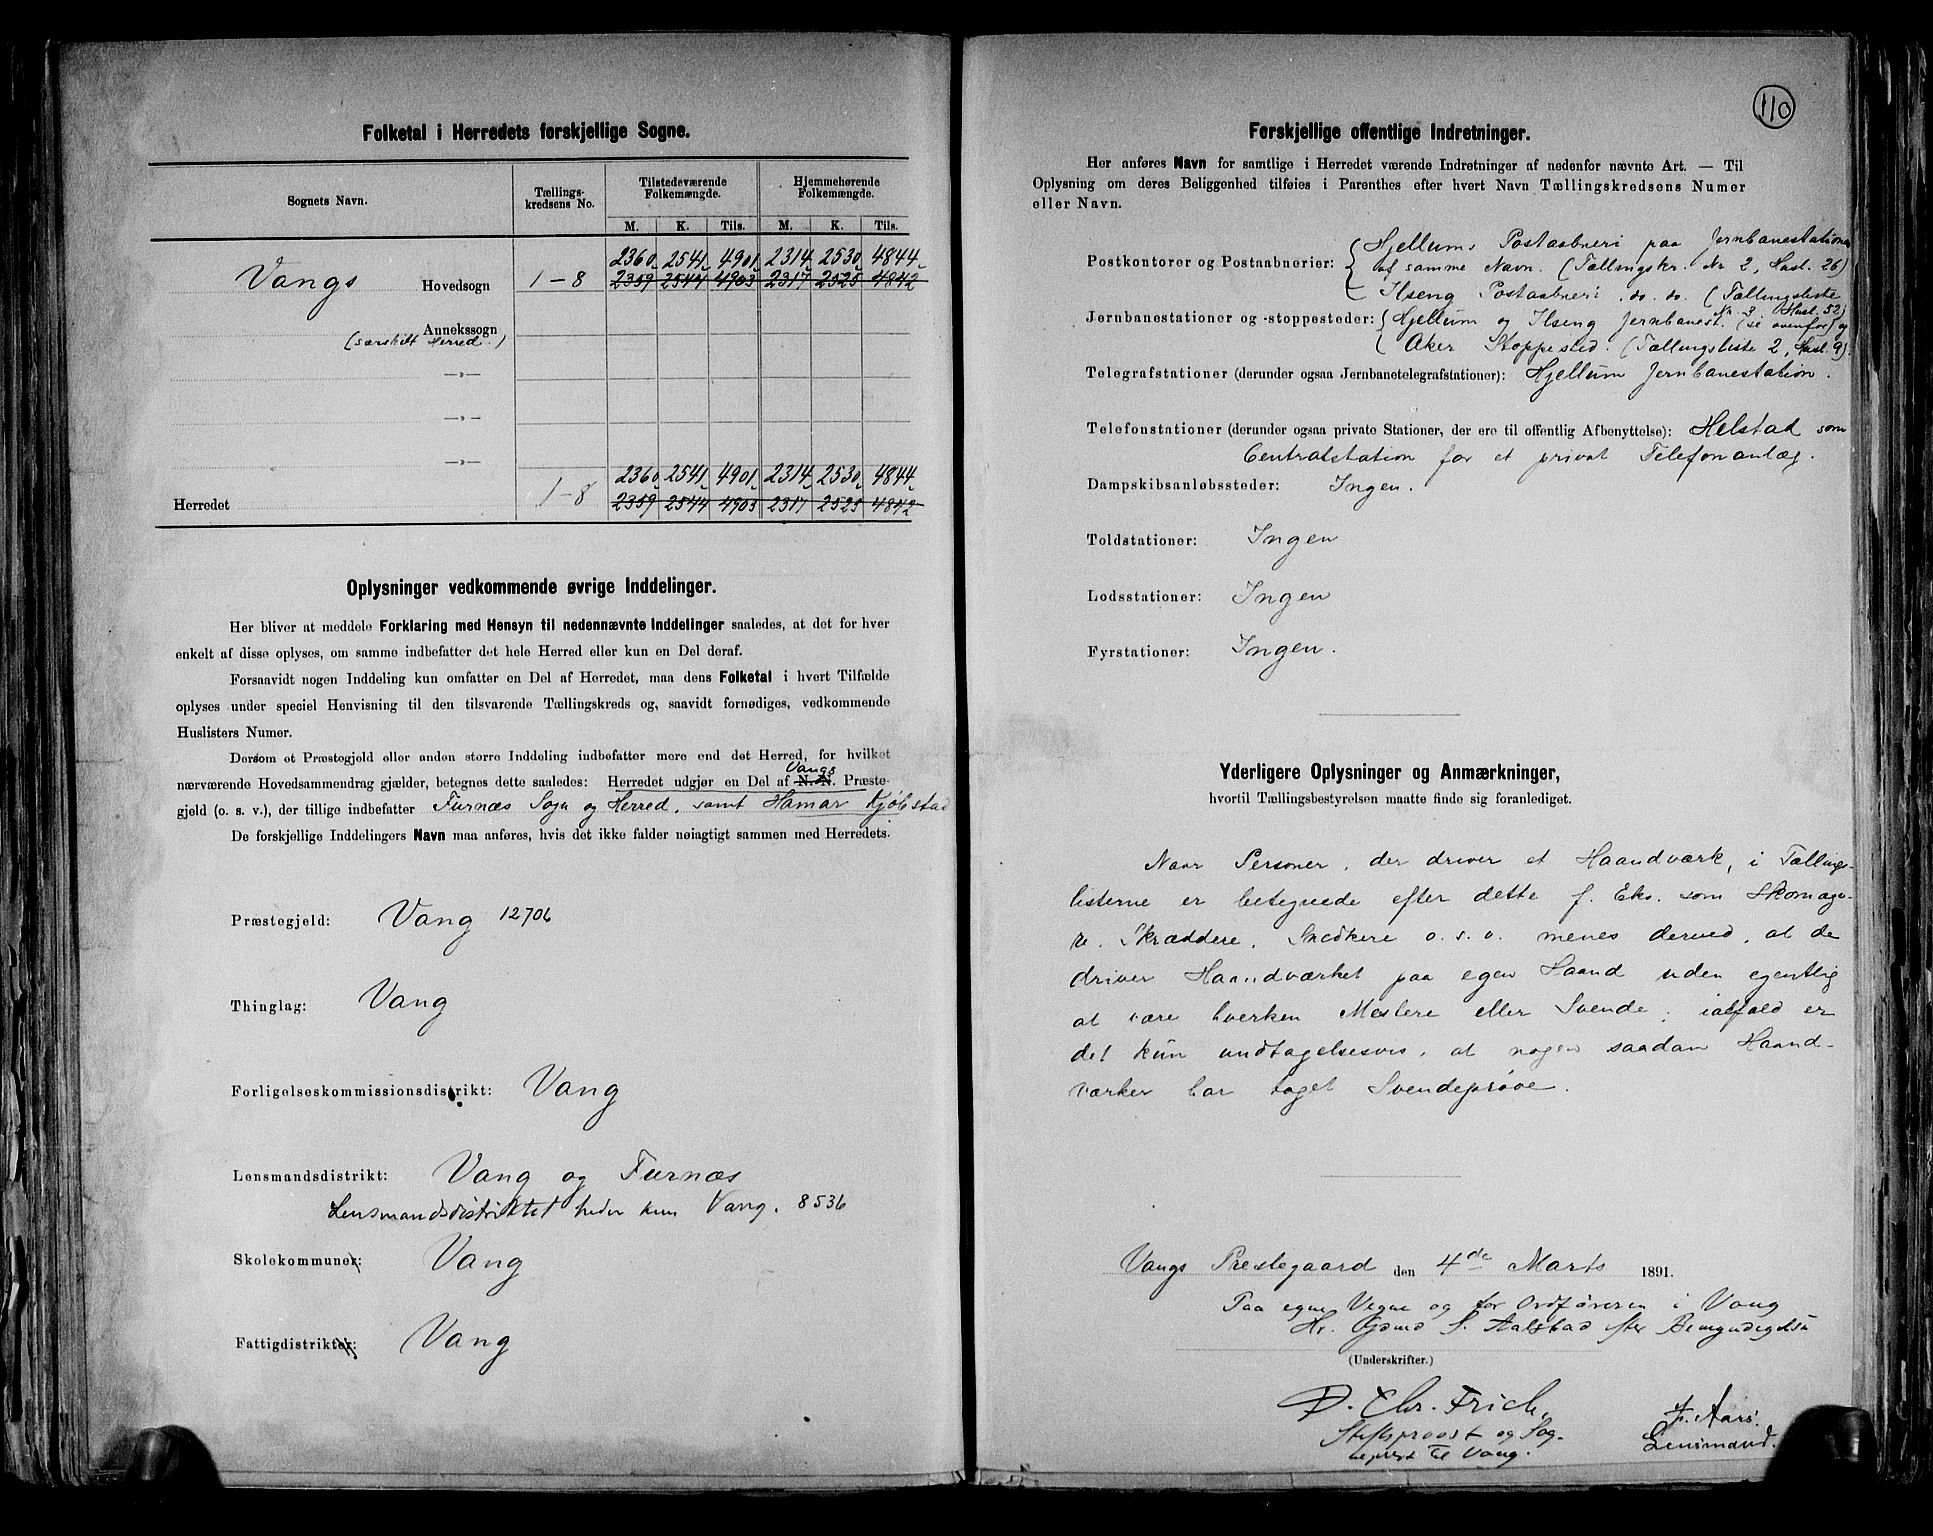 Folketal i Herredets forskjellige Sogne.
Sognets Navn. Tællings-kredsens No. Tilstedeværende Folkemængde. Hjemmehørende Folkemængde.
M. K. Tils. M. K. Tils.
2360 2541 4901 2314 2530 4844
Vangs Hovedsogn 1-8 2359 2544 4903 2317 2525 4842
Annekssogn
(særskilt Herred.)
—„—
—„—
—„—
2360 2541 4901 2314 2530 4844
Herredet 1-8 2359 2544 4903 2317 2525 4842
Oplysninger vedkommende øvrige Inddelinger.
Her bliver at meddele Forklaring med Hensyn til nedennævnte Inddelinger saaledes, at det for hver
enkelt af disse oplyses, om samme indbefatter det hele Herred eller kun en Del deraf.
Forsaavidt nogen Inddeling kun omfatter en Del af Herredet, maa dens Folketal i hvert Tilfælde
oplyses under speciel Henvisning til den tilsvarende Tællingskreds og, saavidt fornødiges, vedkommende
Huslisters Numer.
Dersom et Præstegjeld eller anden større Inddeling indbefatter mere end det Herred, for hvilket
Vangs
nærværende Hovedsammendrag gjælder, betegnes dette saaledes: Herredet udgjør en Del af N. N. Præste-
gjeld (o. s. v.), der tillige indbefatter Furnæs Sogn og Herred, samt Hamar Kjøbstad
De forskjellige Inddelingers Navn maa anføres, hvis det ikke falder nøiagtigt sammen med Herredets.
Præstegjeld: Vang 12706
Thinglag: Vang
Forligelseskommissionsdistrikt: Vang
Lensmandsdistrikt: Vang og Furnæs
Lensmandsdistriktet heder kun Vang. 8536
Skolekommuner: Vang
Fattigdistrikter: Vang
110
Forskjellige offentlige Indretninger.
Her anføres Navn for samtlige i Herredet værende Indretninger af nedenfor nævnte Art. — Til
Oplysning om deres Beliggenhed tilføies i Parenthes efter hvert Navn Tællingskredsens Numer
eller Navn.
Hjellums Postaabneri paa Jernbanestationen
Postkontorer og Postaabnerier: af samme Navn. (Tællingskr. Nr 2, Husl. 26)
Ilseng Postaabneri do. do. (Tællingsliste
Nr. 3 Husl. 52)
Jernbanestationer og -stoppesteder: Hjellum og Ilseng Jernbanest. (se ovenfor) og
Aker Stoppested. (Tællingsliste 2, Husl. 9).
Telegrafstationer (derunder ogsaa Jernbanetelegrafstationer): Hjellum Jernbanestation.
Telefonstationer (derunder ogsaa private Stationer, der ere til offentlig Afbenyttelse): Helstad som
Centralstation for et privat Telefonanlæg.
Dampskibsanløbssteder: Ingen.
Toldstationer: Ingen
Lodsstationer: Ingen
Fyrstationer: Ingen.
Yderligere Oplysninger og Anmærkninger,
hvortil Tællingsbestyrelsen maatte finde sig foranlediget.
Naar Personer, der driver et Haandværk, i Tællings-
listerne er betegnede efter dette f. Eks. som Skomage-
re, Skræddere, Snedkere o. s. v. menes derved, at de
driver Haandværket paa egen Haand uden egentlig
at være hverken Mestere eller Svende; ialfald er
det kun undtagelsesvis, at nogen saadan Haand-
værker har taget Svendeprøve.
Vangs Prestegaard den 4de Marts 1891.
Paa egne Vegne og for Ordføreren i Vang
Hr. S. Aalstad efter Bemyndigelse
(Underskrifter.)
D. Chr. Frich, F. Aars.
Stiftsprovst og Sog- Lensmand.
neprest til Vang.